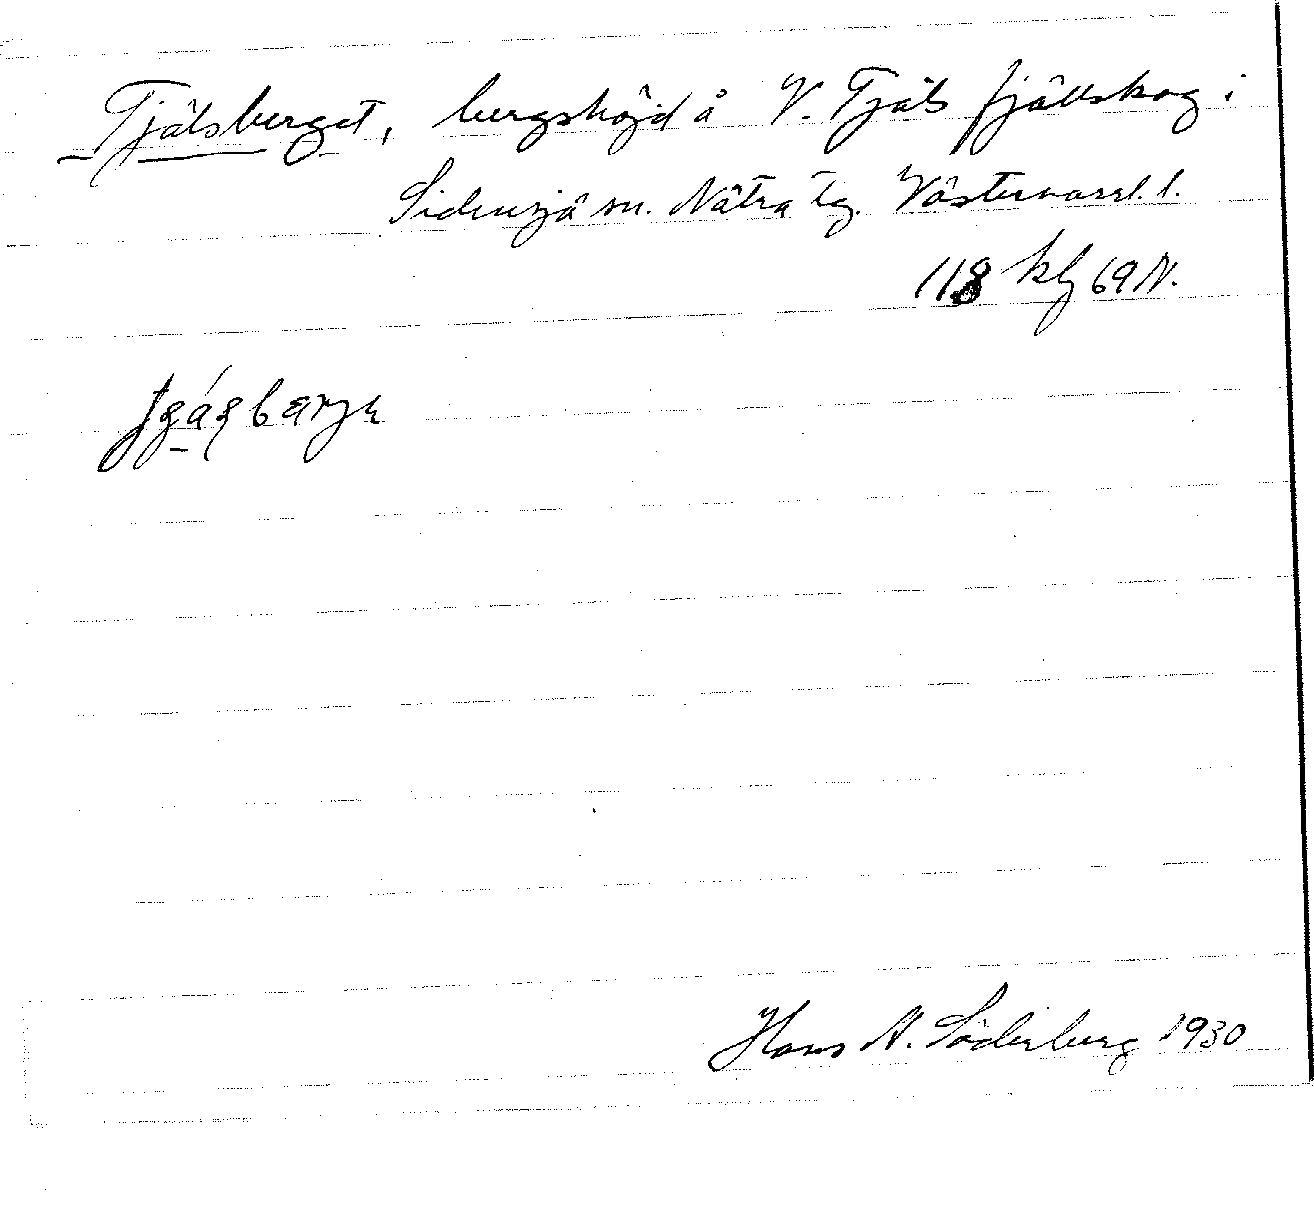 Tjälsberget, bergshöjd å V. Tjäls fjällskog i
Sidensjö sn. Nätra tg. Västernorrl. l.
118 kf 69 N.
Hans A. Söderberg 1930